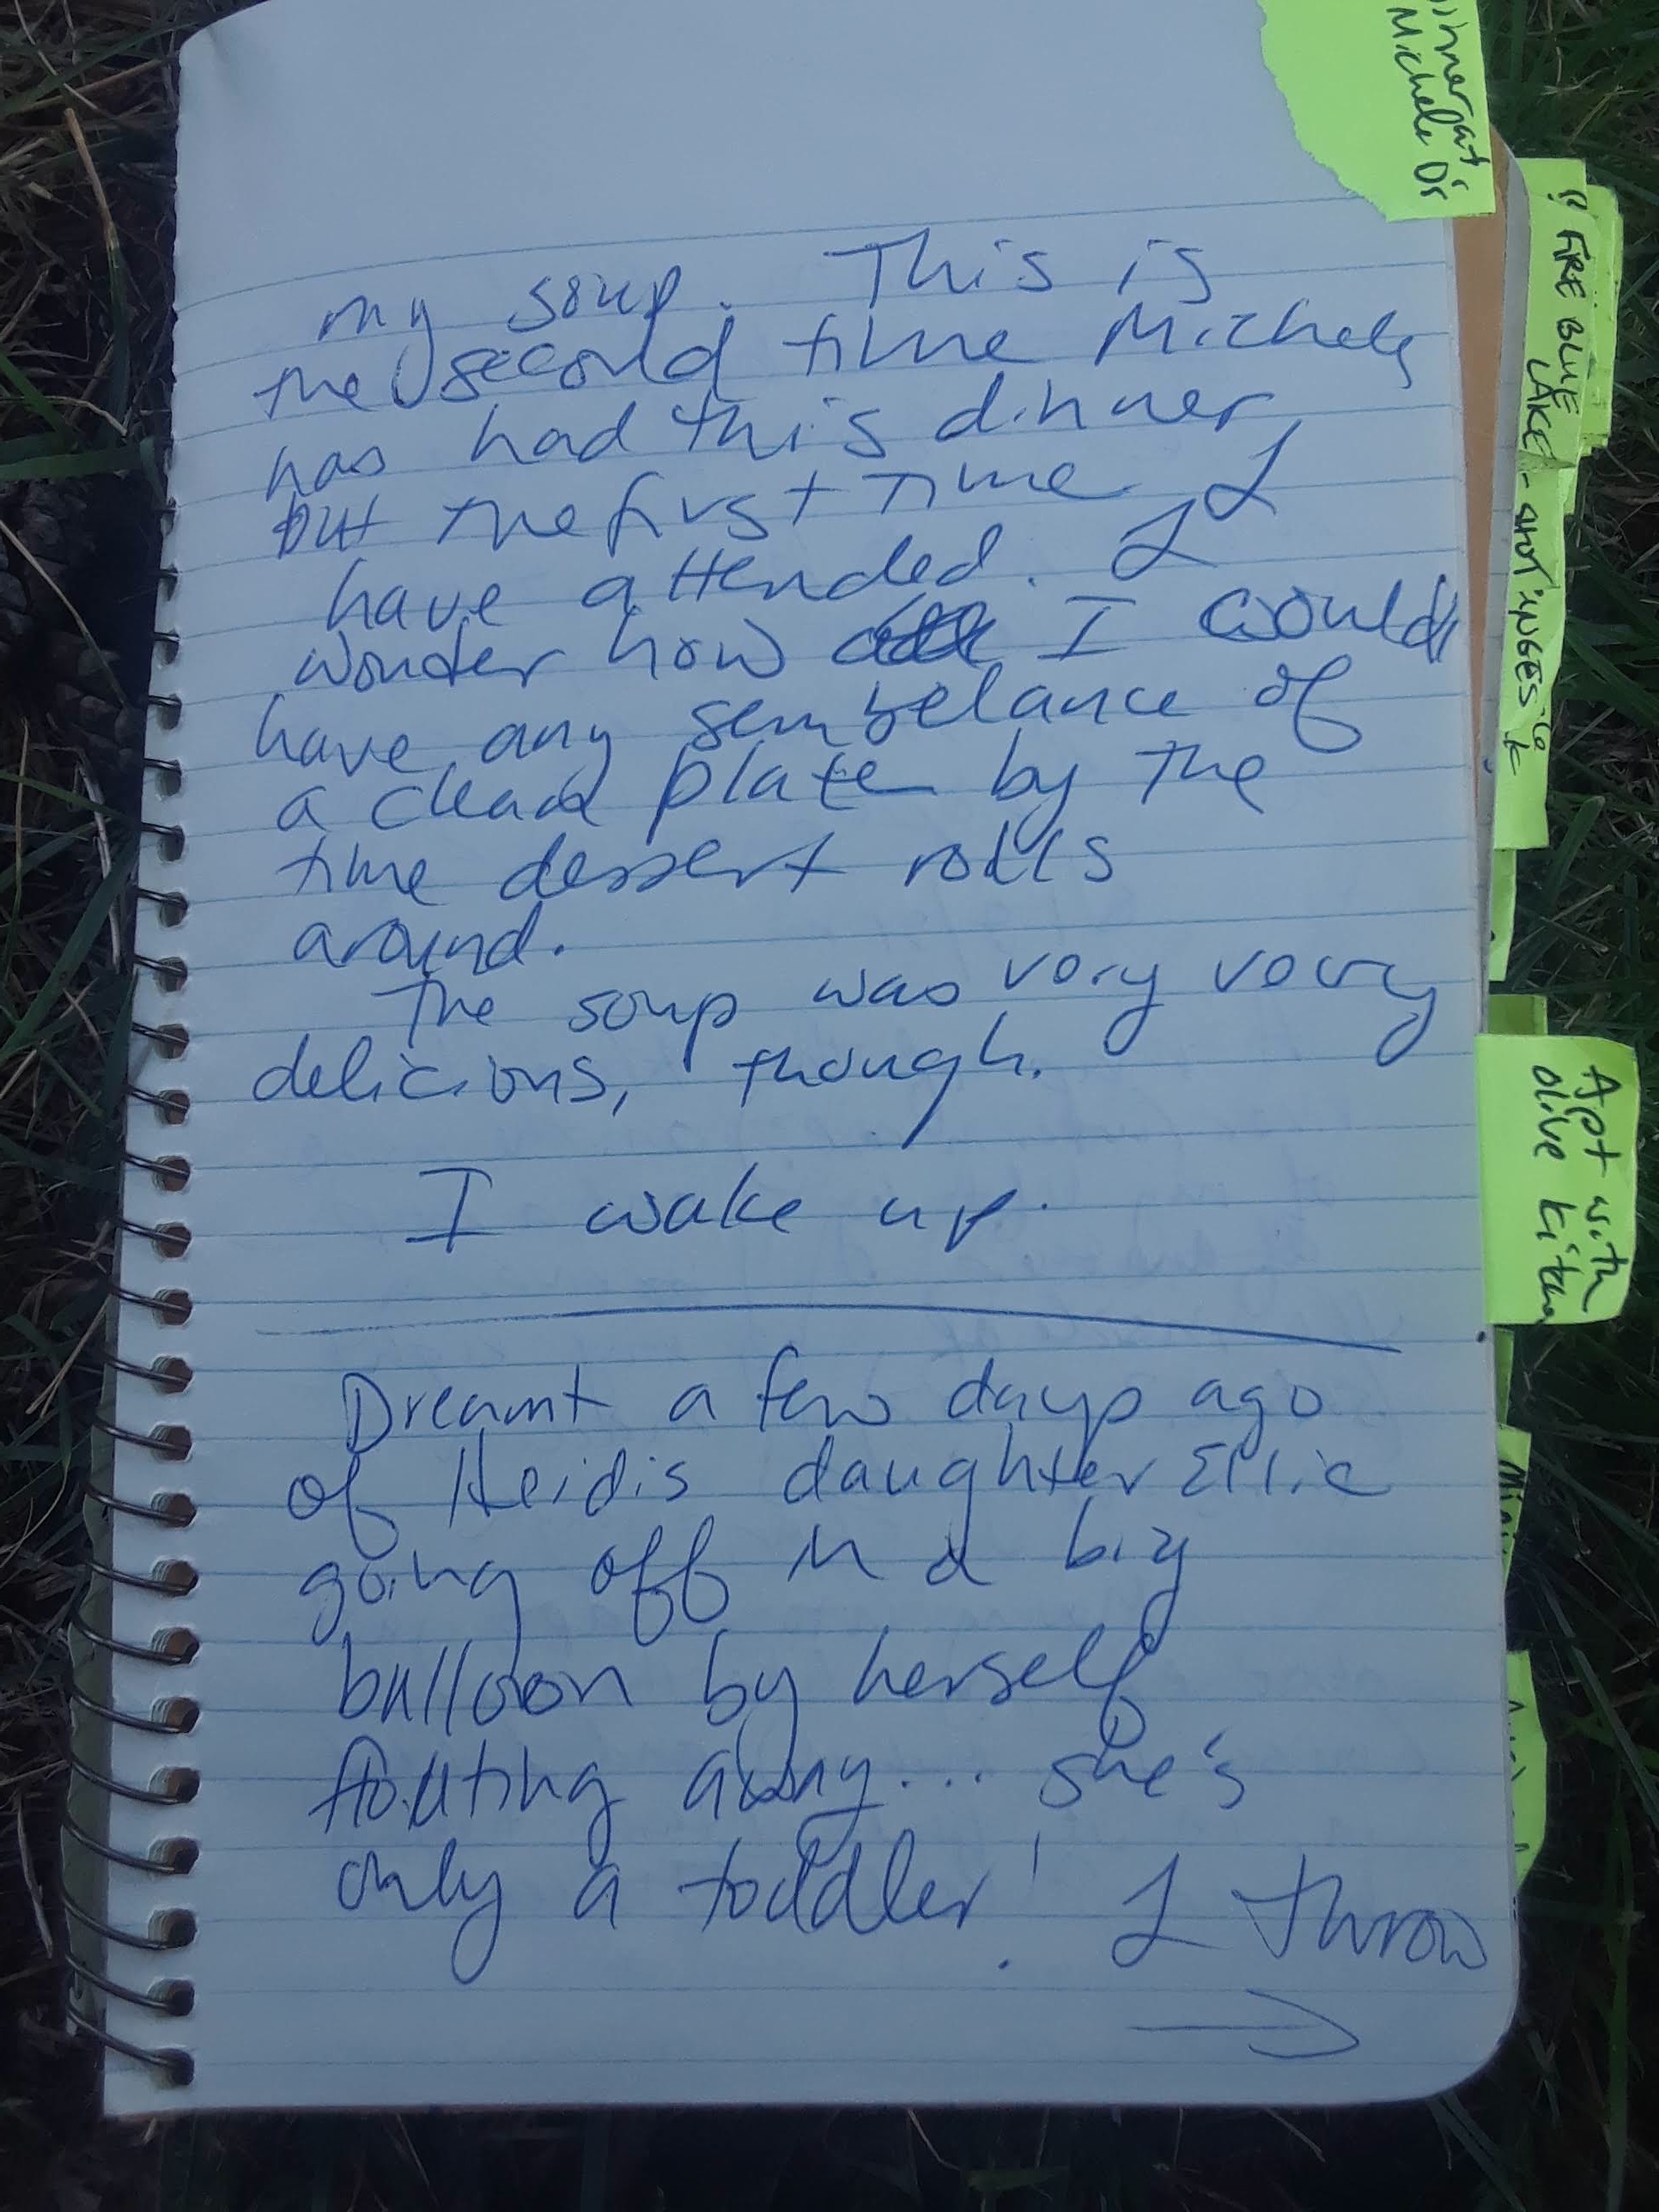 my soup. This is
the second time Michele
has had this dinner,
but the first time I
have attended. I
wonder how I could
have any sembelance of
a clean plate by the
time dessert rolls
around.
The soup was very very
delicious, though.
I wake up.
Dreamt a few days ago
of Heidis daughter Ellie
going off in a big
balloon by herself
floating away... she's
only a toddler! I throw
Dinner at
Michele D's
!! FIRE BLUE
LAKE
Apt with
olive kitchen